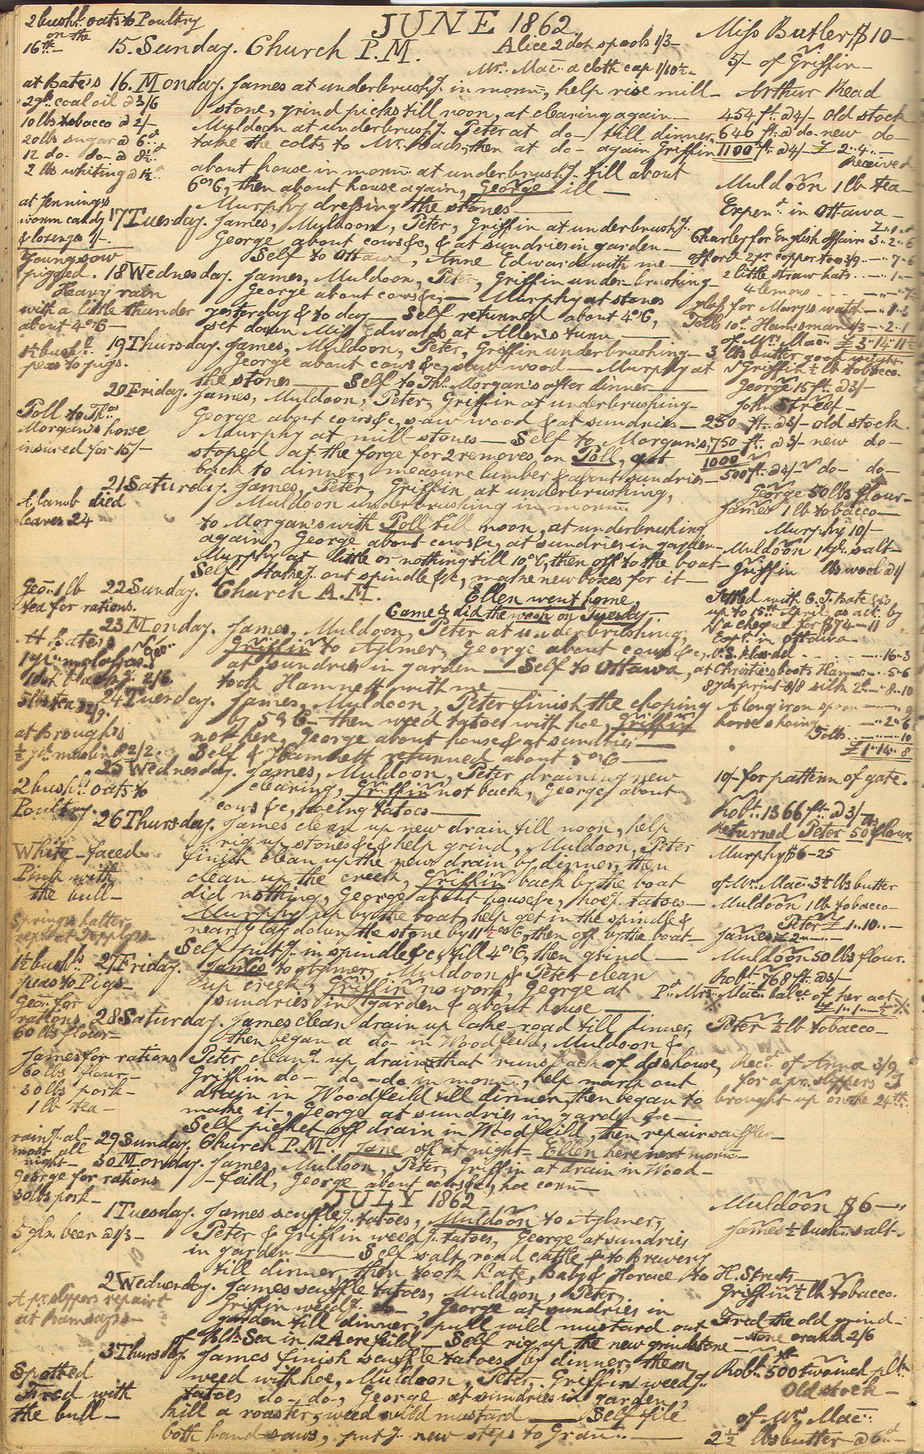 JUNE 1862.
2 bushls. oats to Poultry
on the
16th —
15. Sunday. Church P.M.
Alice 2 doz spools 1/3 —
Mrs. Mac: a cloth cap 1/10½ —
Miss Butler $10 —
5/- of Griffin —
at Bate's
2 gls. coal oil @ 3/6
10 lbs tobacco @ 2/-
20 lbs sugar @ 6d
12 do — do — @ 8½d
2 lbs whiting @ 1½
16. Monday. James at underbrushg. in morng., help rise mill-
stone, grind picks till noon, at clearing again —
Muldoon at underbrushg. Peter at do — till dinner,
take the colts, to Mr. then at do — again, Griffin
about house in morng. at underbrushg. till about
6 o'C, then about house again, George ill —
Murphy dressing the stones —
Arthur Read
454 ft. @ 4/- old stock
646 ft. @ do — new do —
1100 ft. @ 4/- £ 2 . 4 . —
Received
Muldoon 1 lb tea —
at Jennings
worm candy
& lozenges 1/-
17 Tuesday. James, Muldoon, Peter, Griffin at underbrushg.
George about cows &c, & at sundries in garden —
Self to Ottawa, Anne Edwards with me —
Expend. in Ottawa —
Charley for English affairs 3 . 2 . 6
2 little straw hats
4 lemons
Young sow
pigged.
Heavy rain
with a little thunder
about 4 o'C —
18 Wednesday. James, Muldoon, Peter, Griffin underbrushing —
George about cows &c, — Murphy at stones
yesterday & to day — Self returned about 4 o'C,
set down Miss Edwards at Allen's turn —
glass for Mary's watch
of Mrs. Mac:
1½ bushl.
peas to pigs.
19 Thursday. James, Muldoon, Peter, Griffin underbrushing —
George about cows &c, & cut wood — Murphy at
the stones — Self to Ths. Morgan's after dinner —
3 lbs butter good weight
Griffin ½ lb tobacco.
George 15 ft. @ 3/-
Poll to Ths.
Morgan's horse
insured for 15/-
20 Friday. James, Muldoon, Peter, Griffin at underbrushing —
George about cows &c, saw wood & at sundries —
Murphy at mill-stones — Self to Morgan's,
stoped at the forge for 2 removes, on Poll, got
back to dinner, measure lumber & about sundries —
John Street —
250 ft. @ 3/- old stock.
750 ft. @ 3/- new do —
1000
500 ft. @ 4/- do — do —
A lamb died
leaves 24
21 Saturday. James, Peter, Griffin at underbrushing,
Muldoon underbrushing in morng.
to Morgan's with Poll till noon, at underbrushing
again, George about cows &c, at sundries in garden —
Murphy at little or nothing till 10 o'C, then off to the boat —
Self takeg. out spindle &c, make new boxes for it —
George 50 lbs flour —
James 1 lb tobacco —
Murphy 10/-
Muldoon 1 salt —
Griffin lbs wool @ 1/
Geo: 1 lb
tea for rations.
22 Sunday. Church A.M.
Ellen went home
Came & did the wash on Tuesdy.
Settled with C. T. Bate & Co
up to 15th April as act. by
a cheque for $74 – 11
At Bate's
23 Monday. James, Muldoon, Peter at underbrushing,
Griffin to Aylmer, George about cows &c,
at sundries in garden — Self to Ottawa,
took Hamnett with me —
Exps. in Ottawa —
16 . 3
at Christies boots Hamn: 5 . 6
8 . 10
at Brough's
½ yd. muslin @ 2/2.
24 Tuesday. James, Muldoon, Peter finish the choping
by 5 o'C — then weed tatoes with hoe, Griffin
not here, George about house & at sundries —
Self & Hamnett returned about 5 o'C —
A long iron spoon
horse shoeing
Tolls
£ 1 . 14 . 8
2 bushl. oats to
Poultry.
25 Wednesday. James, Muldoon, Peter draining new
clearing, Griffin not back, George about
cows &c, hoeing tatoes —
10/- for pattern of gate.
Robt. 1366 ft. @ 3/-
White-faced
Pink with
the bull —
Springs halter
26 Thursday. James clean up new drain till noon, help
rig up stones &c & help grind, Muldoon, Peter
finish clean up the new drain by dinner, then
clean up the creek, Griffin back by the boat
did nothing, George about house &c, hoeg. tatoes —
Murphy up by the boat, help get in the spindle &
nearly lay down the stone by 11 o'C, then off by the boat —
Self putg. in spindle &c till 4 o'C, then grind —
Returned Peter 50 flour
Murphy $6 – 25
of Mrs. Mac: 3½ lbs butter
Muldoon 1 lb tobacco —
Peter £ 1 . 10 . —
James £ 2
1½ bushl.
peas to Pigs —
27 Friday. James to Aylmer, Muldoon & Peter clean
up creek, Griffin no work, George at
sundries in garden & about house —
Muldoon 50 lbs flour.
Robt. 768 ft. @ 3/-
Pd. Mrs. Mac: balce. of her act
Geo: for
rations
60 lbs flour —
James for rations
60 lbs flour —
30 lbs pork —
1 lb tea —
28 Saturday. James clean drain up lake-road till dinner,
then began a do — in Woodfeild, Muldoon &
Peter cleang. up drain that runs back of do house,
Griffin do — do — do in morng., help mark out
drain in Woodfeild till dinner, then began to
make it, George at sundries in garden &c —
Self picket off drain in Woodfeild, then repair scuffler —
Peter ½ lb tobacco —
Recd. of Anna 3/9
for a pr. slippers I
brought up on the 24th.
raing. al-
most all
night —
29 Sunday. Church P.M. Jane off at night — Ellen here next morng. —
George for rations
30 lbs pork —
30 Monday. James, Muldoon, Peter, Griffin at drain in Wood-
-feild, George about cows &c, hoe corn —
JULY 1862
5 gln. beer @ 1/3 —
1 Tuesday. James scuffleg. tatoes, Muldoon to Aylmer,
Peter & Griffin weedg. tatoes, George at sundries
in garden — Self salt, road cattle & to Brewery
till dinner, then took Kate, Baby & Horace to H. Streets
Muldoon $6 —
James ½ bushl. salt —
A pr. slippers repaird
at Ramsay's —
2 Wednesday. James scuffle tatoes, Muldoon, Peter,
Griffin weedg. do —, George at sundries in
garden till dinner, pull wild mustard out
of Black Sea in 12 Acre feild — Self rig up the new grindstone —
Griffin ½ lb tobacco.
Fred the old grind-
-stone crank 2/6
Spotted
Fred with
the bull —
3 Thursday. James finish scuffle tatoes by dinner, then
weed with hoe, Muldoon, Peter, Griffin weedg.
tatoes do — do —, George at sundries in garden,
kill a roaster, weed wild mustard — Self file
both hand saws, putg. new steps to Gran:. —
Robt. 500
Old stock —
of Mrs. Mac:
2½ lbs butter @ 6d —